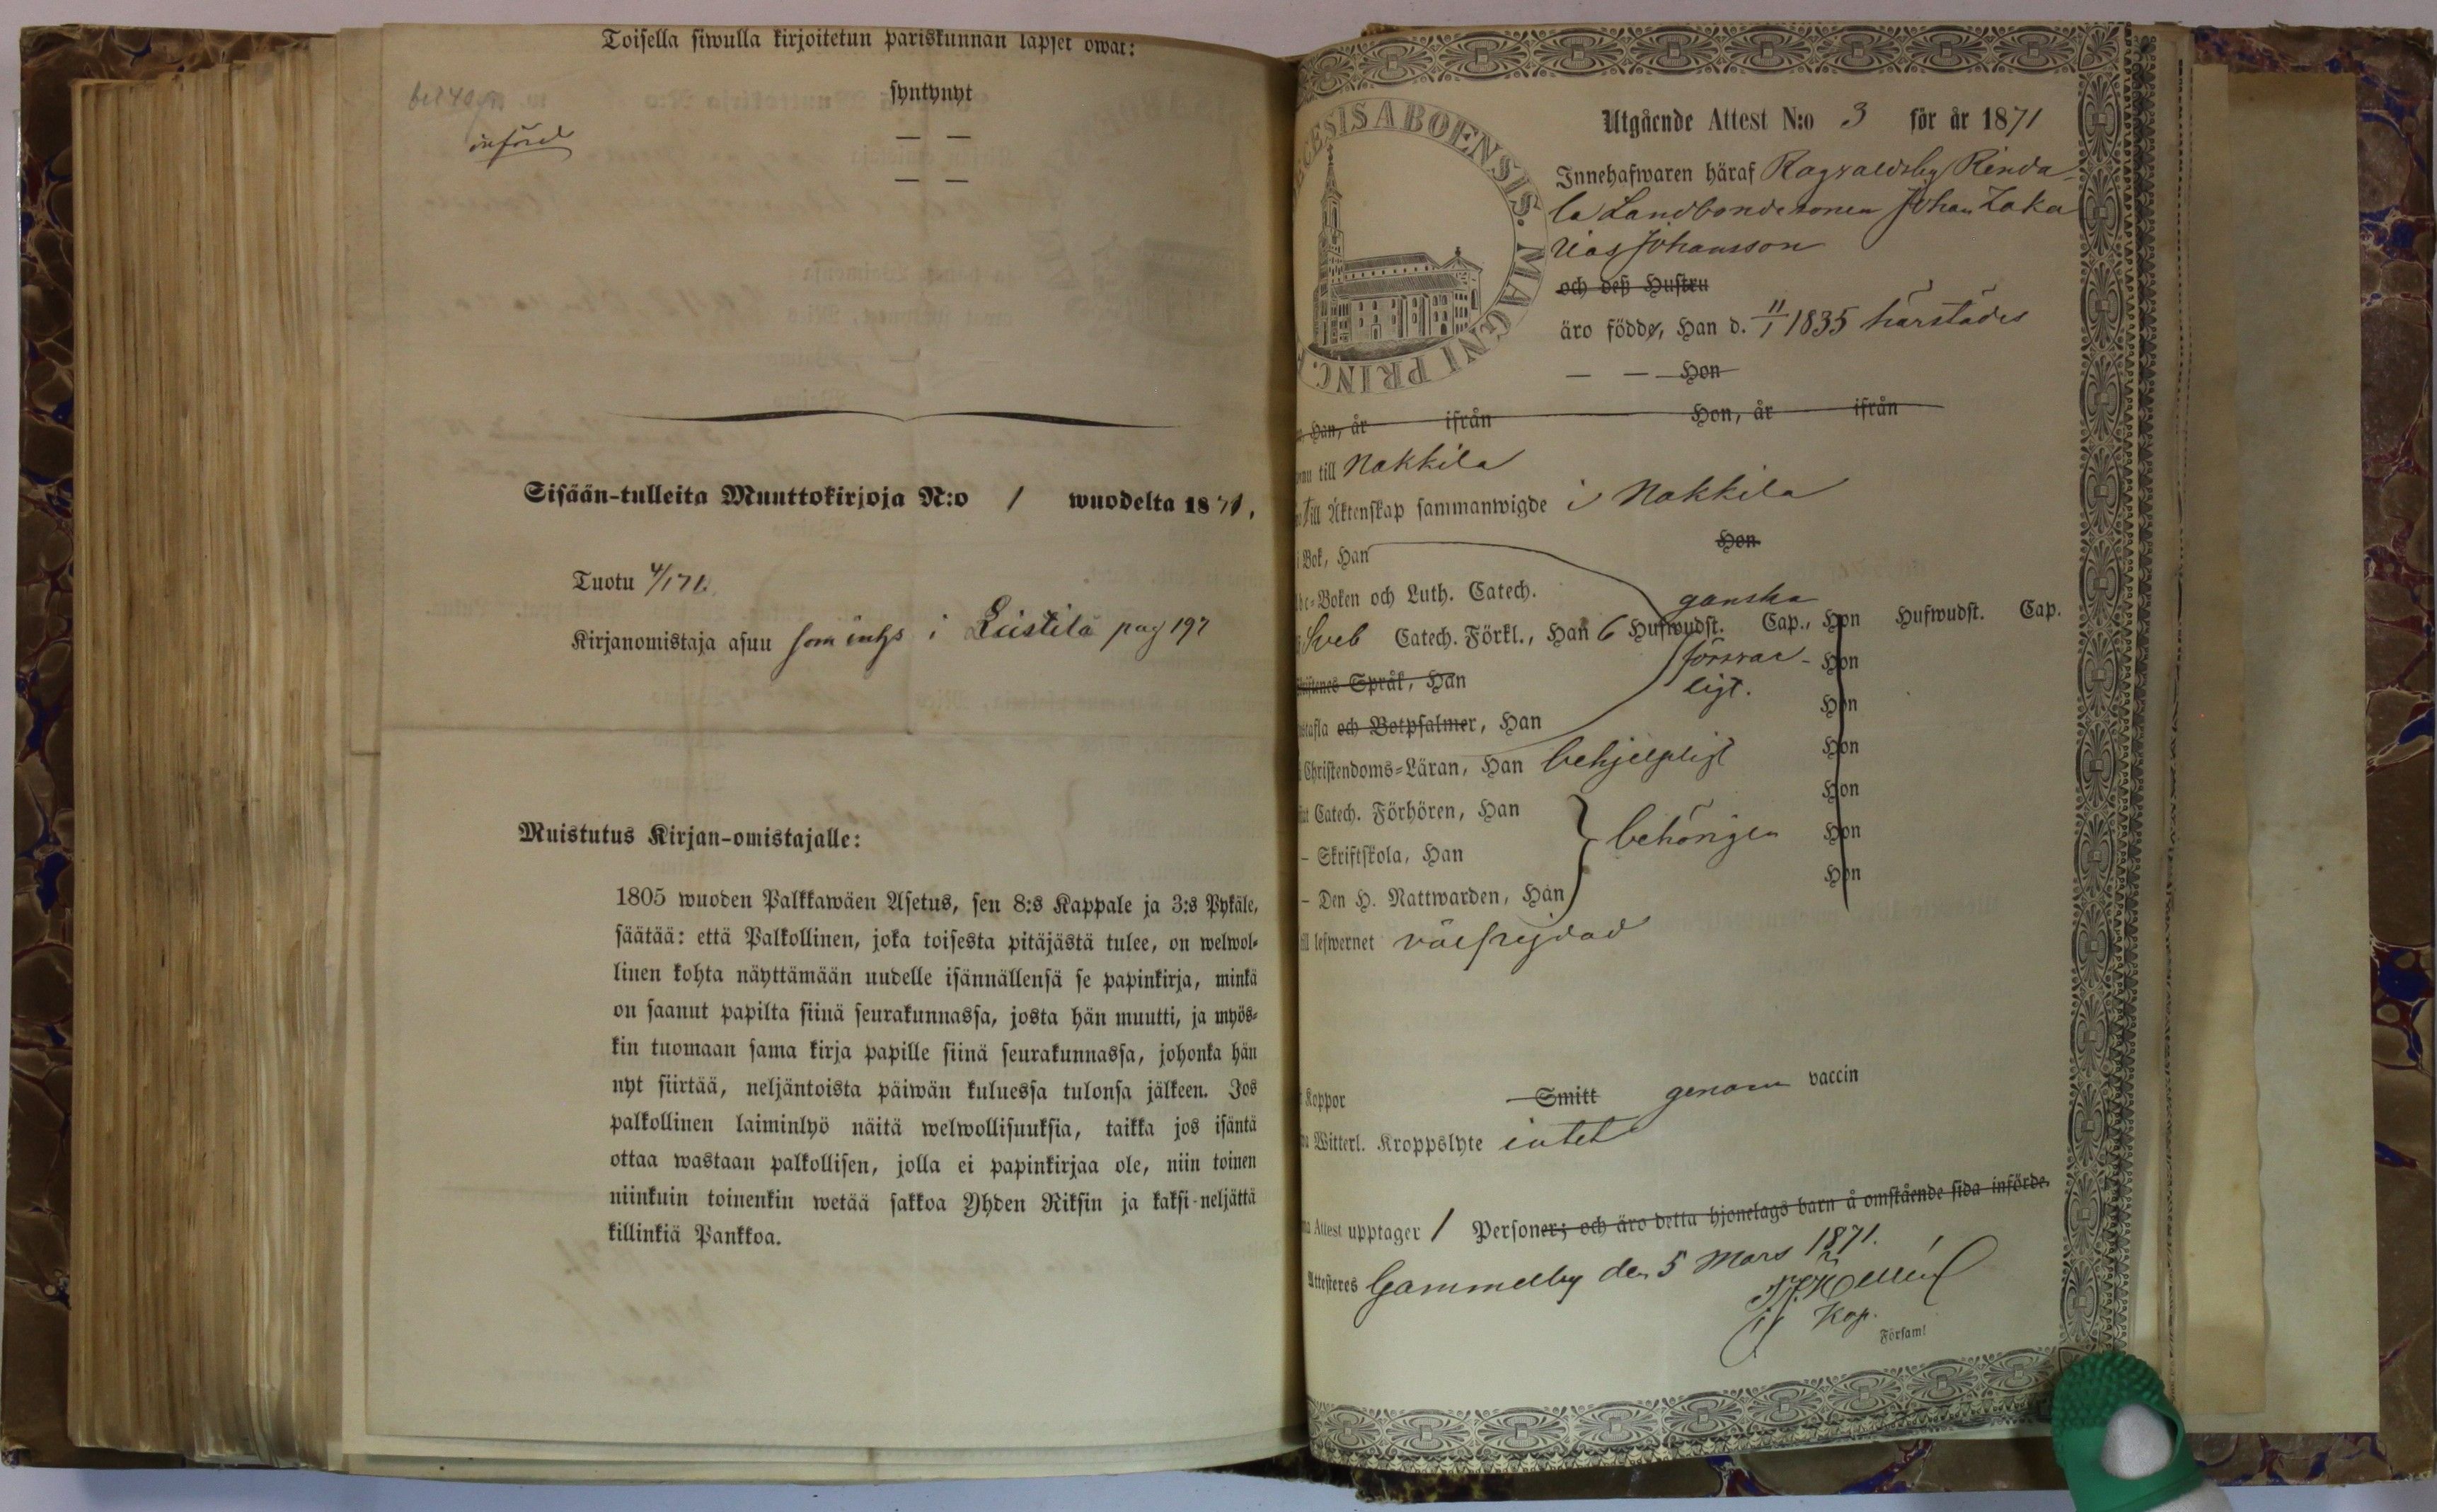 Toisella siwulla kirjoitetun pariskunnan lapset owat:
införd
syntynyt
— —
— —
Sisään-tulleita Muuttokirjoja N:o 1 wuodelta 1871.
Tuotu 4/1 71.
Kirjanomistaja asuu som inhs i Liistilä pag 197
Muistutus Kirjan-omistajalle:
1805 wuoden Palkkawäen Asetus, sen 8:s Kappale ja 3:s Pykäle,
säätää: että Palkollinen, joka toisesta pitäjästä tulee, on welwol-
linen kohta näyttämään uudelle isännällensä se papinkirja, minkä
on saanut papilta siinä seurakunnassa, josta hän muutti, ja myös-
kin tuomaan sama kirja papille siinä seurakunnassa, johonka hän
nyt siirtää, neljäntoista päiwän kuluessa tulonsa jälkeen. Jos
palkollinen laiminlyö näitä welwollisuuksia, taikka jos isäntä
ottaa wastaan palkollisen, jolla ei papinkirjaa ole, niin toinen
niinkuin toinenkin wetää sakkoa Yhden Riksin ja kaksi-neljättä
killinkiä Pankkoa.
ECESIS ABOENSIS. MAGNI PRINC.
Utgående Attest N:o 3 för år 1871
Innehafwaren häraf Ragvaldsby Rinda-
la Landbondesonen Johan Zaka
rias Johansson
och deß Hustru
äro födde, Han d. 11/1 1835 härstädes
— — Hon
Han, år ifrån Hon, år ifrån
till Nakkila
till Äktenskap sammanwigde i Nakkila
i Bok, Han Hon
Abc-Boken och Luth. Catech. ganska
Sveb Catech. Förkl., Han 6 Hufwudst. Cap., Hon Hufwudst. Cap.
försvar- Hon
Språk, Han ligt.
Hustafla och Botpsalmer, Han Hon
Christendoms-Läran, Han behjelpligt Hon
Catech. Förhören, Han Hon
– Skriftskola, Han behörigen Hon
– Den H. Nattwarden, Han Hon
till lefwernet välfrejdad
Koppor Smitt genom vaccin
Witterl. Kroppslyte intet
Attest upptager 1 Personer; och äro detta hjonelags barn å omstående sida införde.
Attesteres Gammelby den 5 Mars 1871.
Kap.
Församl